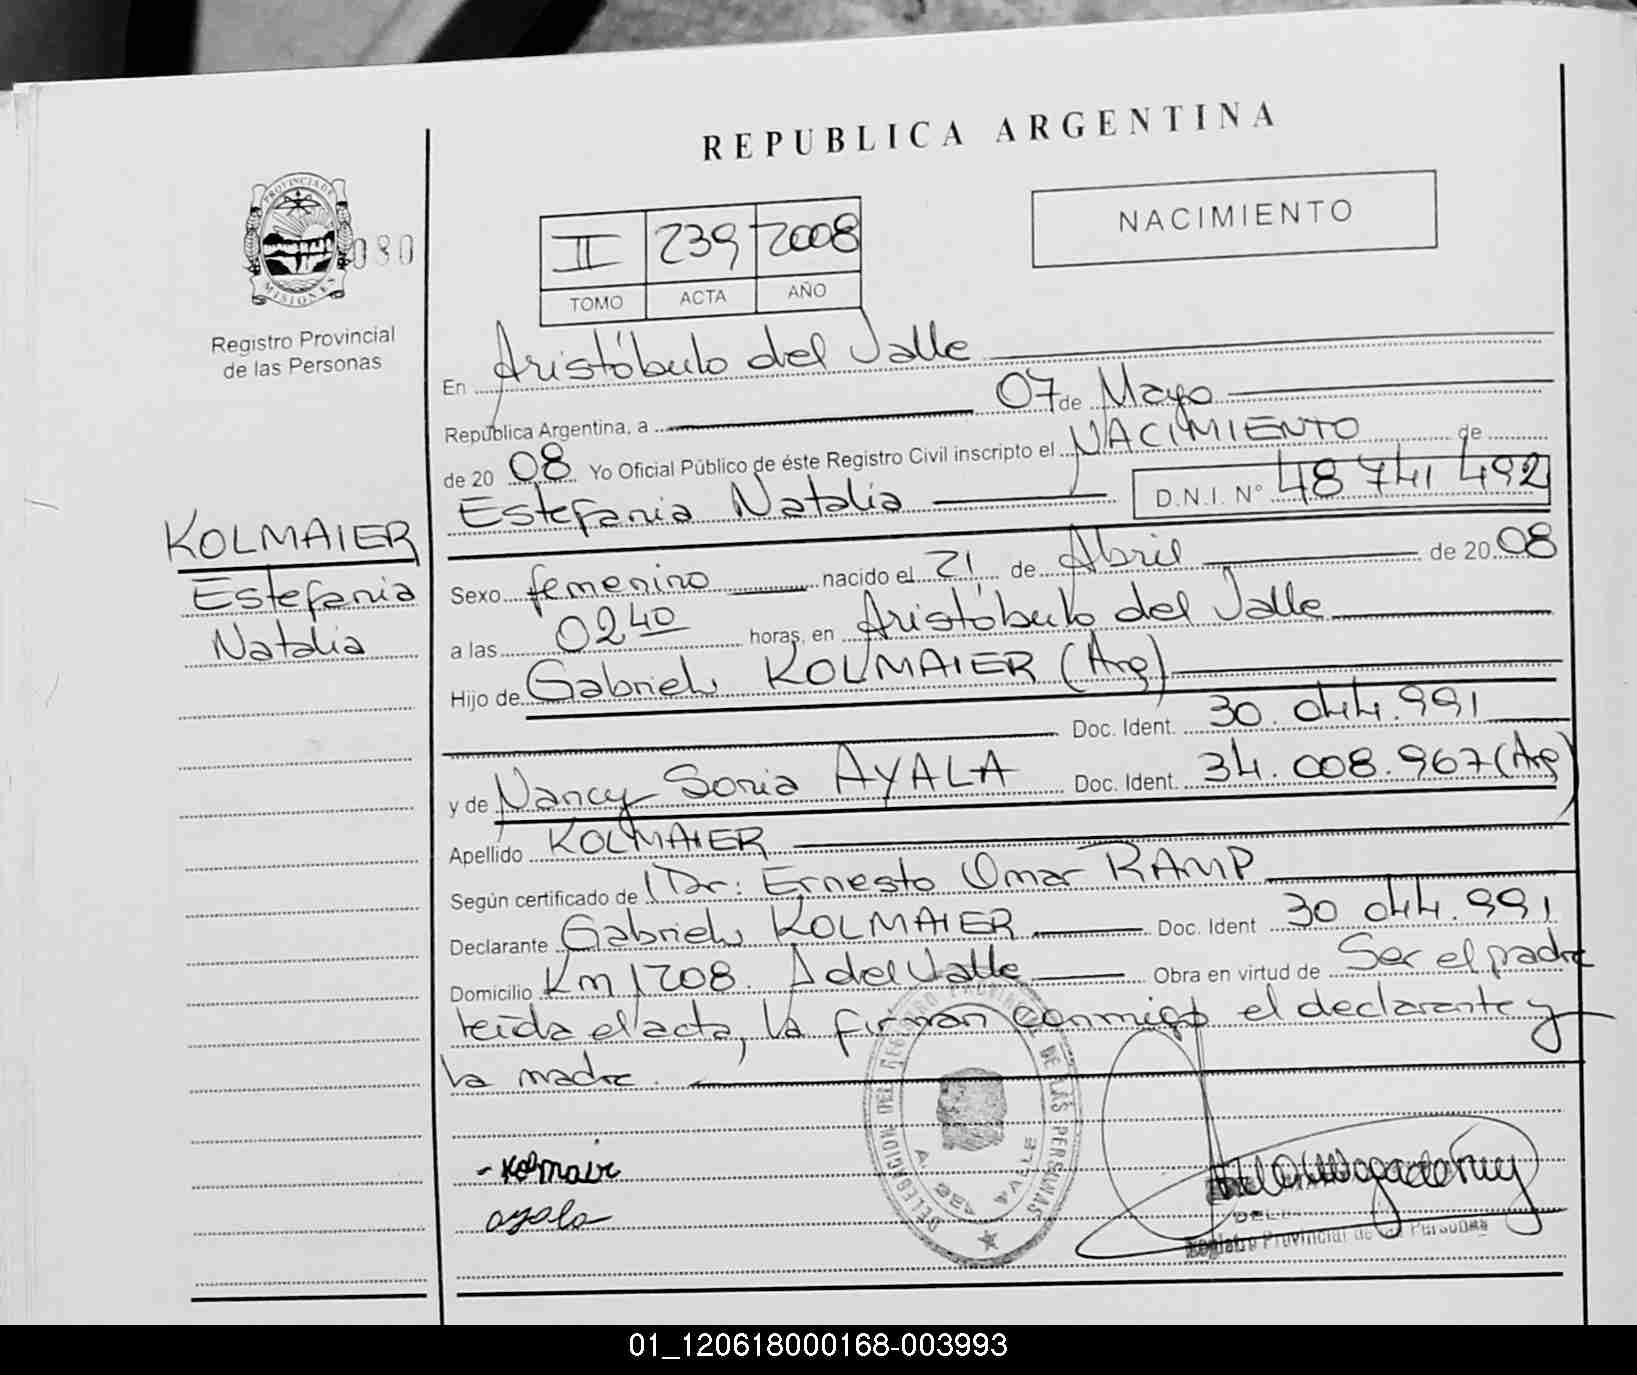 REPUBLICA ARGENTINA
NACIMIENTO
PROVINCIA DE
MISIONES
080
Registro Provincial
de las Personas
II 239 2008
TOMO ACTA AÑO
En Aristóbulo del Valle
República Argentina, a 07 de Mayo
de 20 08 Yo Oficial Público de éste Registro Civil inscripto el NACIMIENTO de
Estefania Natalia D.N.I. N° 48 741 492
KOLMAIER
Estefania
Natalia
Sexo femenino nacido el 21 de Abril de 20 08
a las 0240 horas, en Aristóbulo del Valle
Hijo de Gabriel KOLMAIER (Arg)
Doc. Ident. 30.044.991
y de Nancy Sonia AYALA Doc. Ident. 34.008.967 (Arg)
Apellido KOLMAIER
Según certificado de Dr: Ernesto Omar RAMP
Declarante Gabriel KOLMAIER Doc. Ident 30 044.991
Domicilio Km 1208. A del Valle Obra en virtud de Ser el padre
leída el acta, la firman conmigo el declarante y
la madre.
DELEGACION DEL REGISTRO PROVINCIAL DE LAS PERSONAS
- Kolmaier
ayala
Registro Provincial de las Personas
01_120618000168-003993